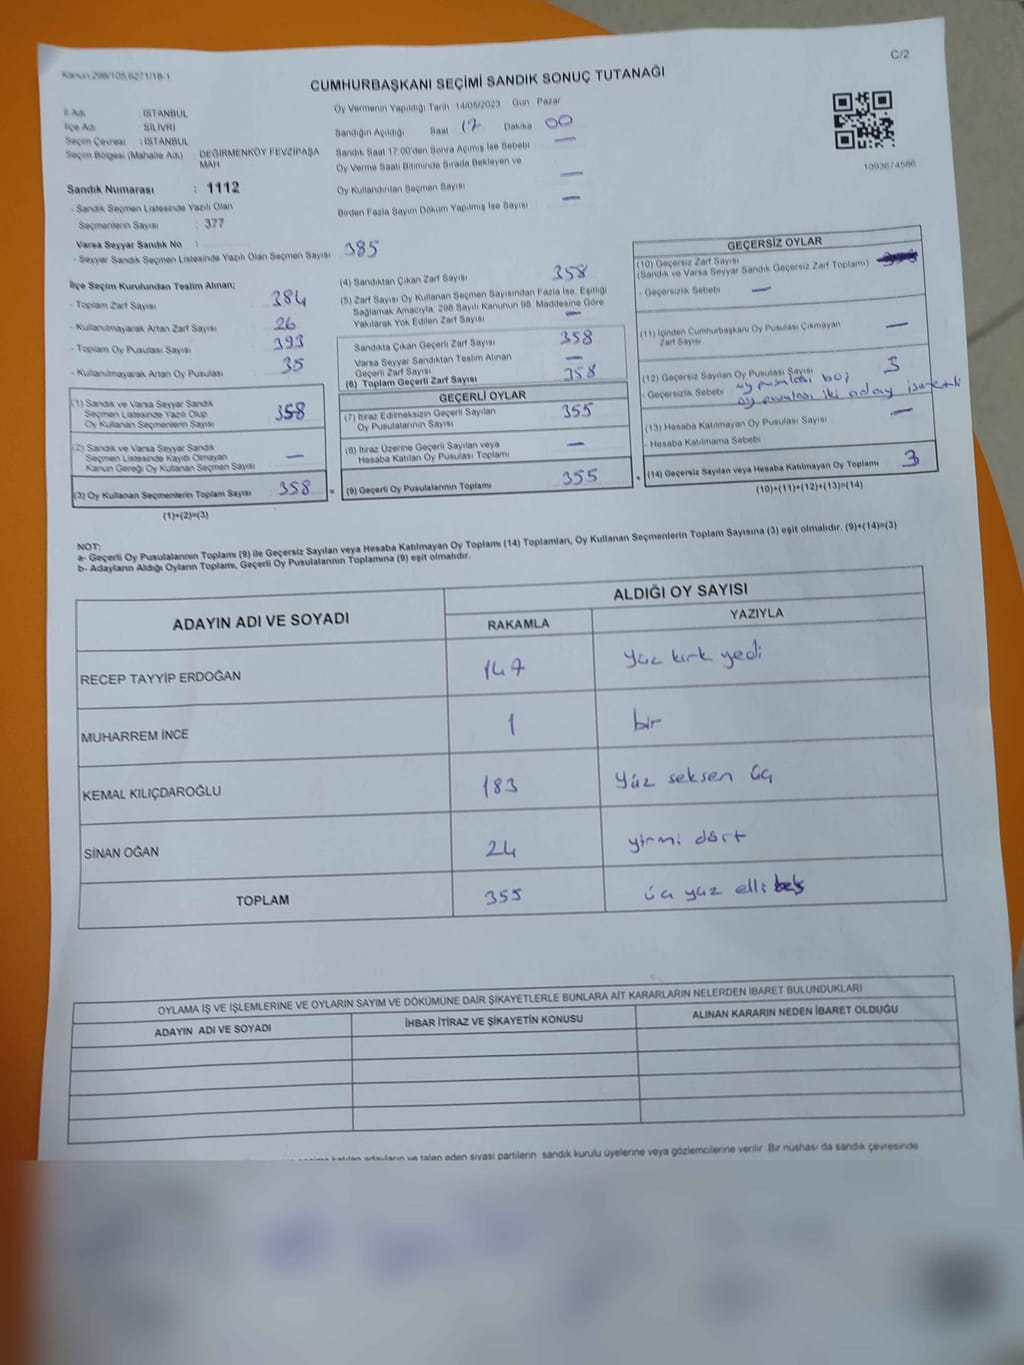 Kanun 298/105,6271/18-1
C/2
CUMHURBAŞKANI SEÇİMİ SANDIK SONUÇ TUTANAĞI
İl Adı : İSTANBUL
İlçe Adı SİLİVRİ
Seçim Çevresi : İSTANBUL
Seçim Bölgesi (Mahalle Adı) DEĞİRMENKÖY FEVZİPAŞA MAH.
Sandık Numarası : 1112
- Sandık Seçmen Listesinde Yazılı Olan
Seçmenlerin Sayısı : 377
Varsa Seyyar Sandık No :
- Seyyar Sandık Seçmen Listesinde Yazılı Olan Seçmen Sayısı 385
Oy Vermenin Yapıldığı Tarih 14/05/2023 Gün Pazar
Sandığın Açıldığı Saat 17 Dakika 00
Sandık Saat 17:00'den Sonra Açılmış İse Sebebi —
Oy Verme Saati Bitiminde Sırada Bekleyen ve
Oy Kullandırılan Seçmen Sayısı —
Birden Fazla Sayım Döküm Yapılmış İse Sayısı —
1093674586
İlçe Seçim Kurulundan Teslim Alınan;
- Toplam Zarf Sayısı 384
- Kullanılmayarak Artan Zarf Sayısı 26
- Toplam Oy Pusulası Sayısı 393
- Kullanılmayarak Artan Oy Pusulası 35
(1) Sandık ve Varsa Seyyar Sandık
Seçmen Listesinde Yazılı Olup
Oy Kullanan Seçmenlerin Sayısı 358
(2) Sandık ve Varsa Seyyar Sandık
Seçmen Listesinde Kayıtlı Olmayan
Kanun Gereği Oy Kullanan Seçmen Sayısı —
(3) Oy Kullanan Seçmenlerin Toplam Sayısı 358 =
(1)+(2)=(3)
(4) Sandıktan Çıkan Zarf Sayısı 358
(5) Zarf Sayısı Oy Kullanan Seçmen Sayısından Fazla İse, Eşitliği
Sağlamak Amacıyla, 298 Sayılı Kanunun 98. Maddesine Göre
Yakılarak Yok Edilen Zarf Sayısı —
Sandıkta Çıkan Geçerli Zarf Sayısı 358
Varsa Seyyar Sandıktan Teslim Alınan
Geçerli Zarf Sayısı —
(6) Toplam Geçerli Zarf Sayısı 358
GEÇERLİ OYLAR
(7) İtiraz Edilmeksizin Geçerli Sayılan
Oy Pusulalarının Sayısı 355
(8) İtiraz Üzerine Geçerli Sayılan veya
Hesaba Katılan Oy Pusulası Toplamı —
(9) Geçerli Oy Pusulalarının Toplamı 355 +
GEÇERSİZ OYLAR
(10) Geçersiz Zarf Sayısı
(Sandık ve Varsa Seyyar Sandık Geçersiz Zarf Toplamı)
- Geçersizlik Sebebi —
(11) İçinden Cumhurbaşkanı Oy Pusulası Çıkmayan
Zarf Sayısı —
(12) Geçersiz Sayılan Oy Pusulası Sayısı 3
- Geçersizlik Sebebi oy pusulası boş
oy pusulası iki aday işaretli
(13) Hesaba Katılmayan Oy Pusulası Sayısı —
- Hesaba Katılmama Sebebi
(14) Geçersiz Sayılan veya Hesaba Katılmayan Oy Toplamı 3
(10)+(11)+(12)+(13)=(14)
NOT:
a- Geçerli Oy Pusulalarının Toplamı (9) ile Geçersiz Sayılan veya Hesaba Katılmayan Oy Toplamı (14) Toplamları, Oy Kullanan Seçmenlerin Toplam Sayısına (3) eşit olmalıdır. (9)+(14)=(3)
b- Adayların Aldığı Oyların Toplamı, Geçerli Oy Pusulalarının Toplamına (9) eşit olmalıdır.
ADAYIN ADI VE SOYADI
ALDIĞI OY SAYISI
RAKAMLA YAZIYLA
RECEP TAYYİP ERDOĞAN 147 yüz kırk yedi
MUHARREM İNCE 1 bir
KEMAL KILIÇDAROĞLU 183 yüz seksen üç
SİNAN OĞAN 24 yirmi dört
TOPLAM 355 üç yüz elli beş
OYLAMA İŞ VE İŞLEMLERİNE VE OYLARIN SAYIM VE DÖKÜMÜNE DAİR ŞİKAYETLERLE BUNLARA AİT KARARLARIN NELERDEN İBARET BULUNDUKLARI
ADAYIN ADI VE SOYADI İHBAR İTİRAZ VE ŞİKAYETİN KONUSU ALINAN KARARIN NEDEN İBARET OLDUĞU
katılan adayların ve talep eden siyasi partilerin sandık kurulu üyelerine veya gözlemcilerine verilir. Bir nüshası da sandık çevresinde